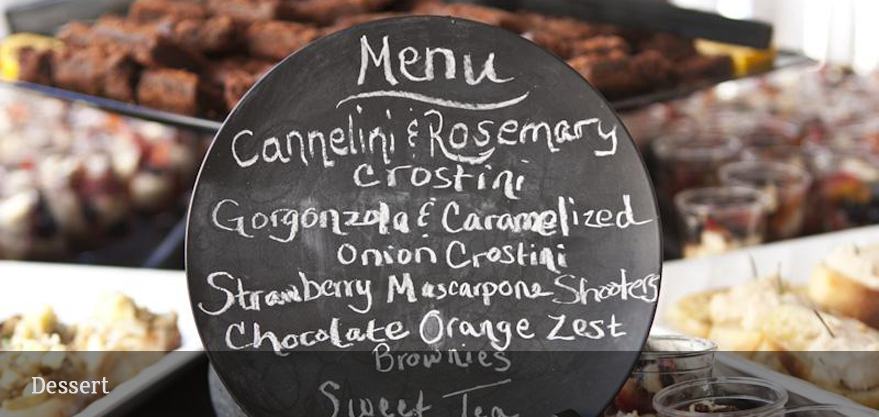 Menu
Cannelini & Rosemary
Crostini
Gorgonzola & Caramelized
Onion Crostini
Strawberry Mascarpone Shooters
Chocolate Orange Zest
Brownies
Sweet Tea
Dessert